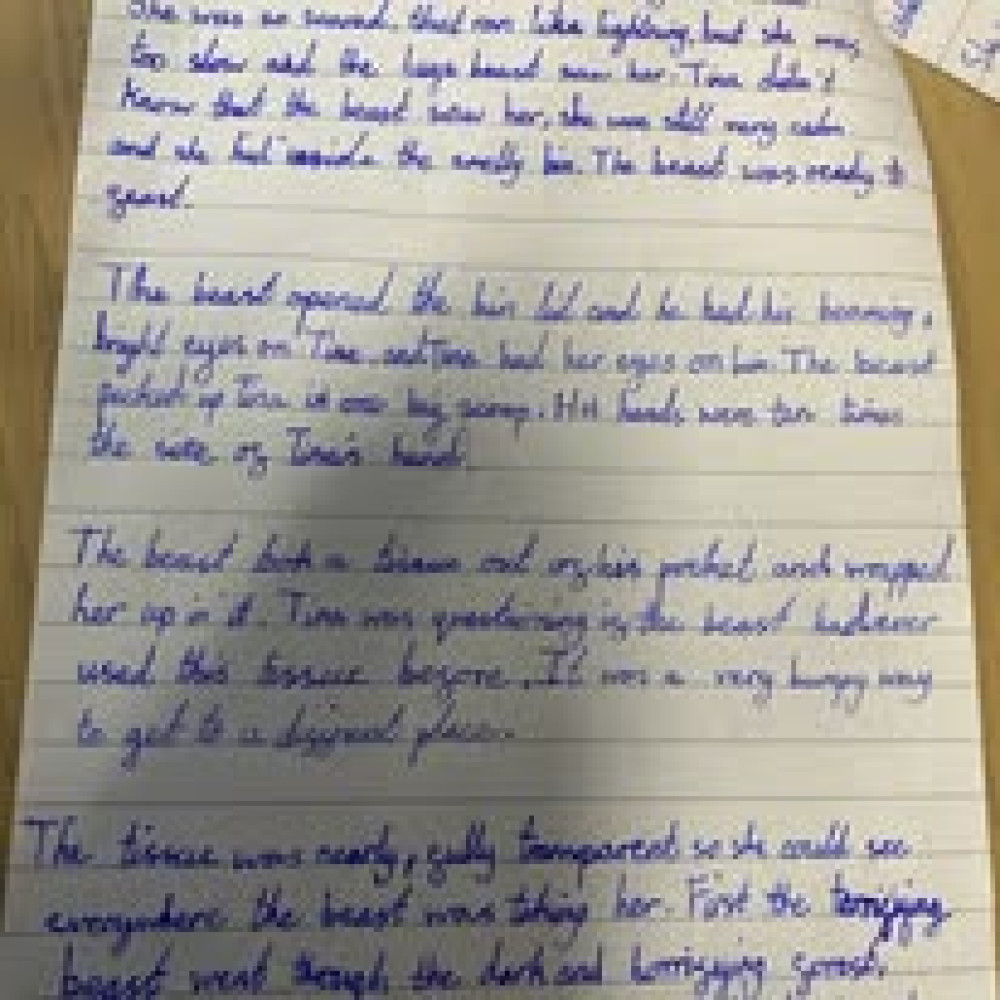 She was so scared, that ran like lightning, but she was
too slow and the large beast saw her. Tina didn't
know that the beast saw her, she was still very calm
and she hid inside the smelly bin. The beast was ready to
feast.
The beast opened the bin lid and he had his beaming,
bright eyes on Tina and Tina had her eyes on him. The beast
picked up Tina in one big scoop. His hands were ten times
the size of Tina's hand.
The beast took a tissue out of his pocket and wrapped
her up in it. Tina was questioning if the beast had ever
used this tissue before. It was a very bumpy way
to get to a different place.
The tissue was nearly, fully transparent so she could see
everywhere the beast was taking her. First the terrifying
beast went through the dark and horrifying forest.